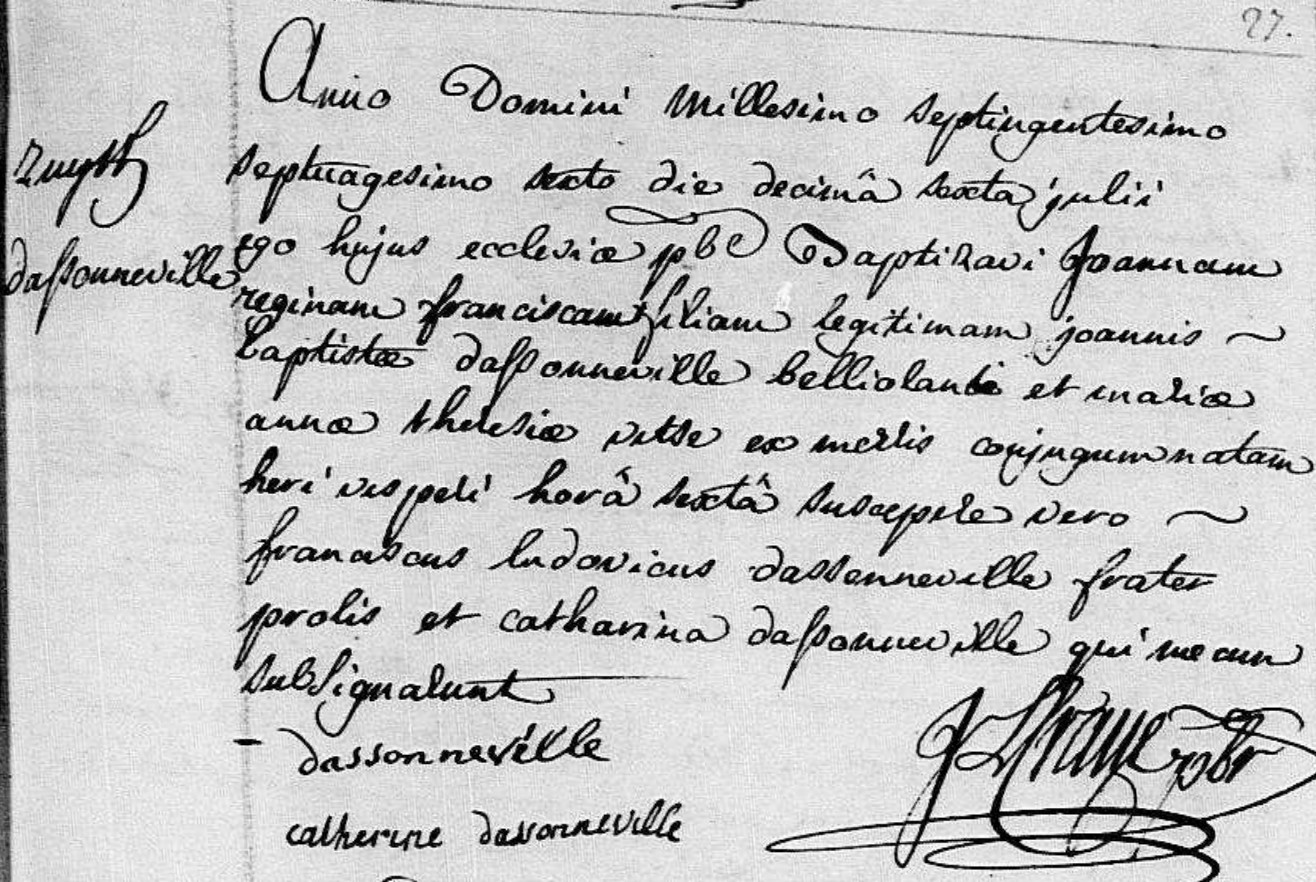 27.
Anno Domini Millesimo septingentesimo
septuagesimo sexto die decimâ sexta julii
ego hujus ecclesiæ pbr Baptizavi Joannam
reginam franciscam filiam legitimam joannis ~
baptistæ dassonneville belliolani et mariæ
annæ theresiæ vitse ex merris conjugum natam
heri vesperi horâ sextâ suscepere vero ~
franciscus ludovicus dassenneville frater
prolis et catharina dassonneville qui mecum
subsignarunt
dassonneville
dassonneville
catherine dassonneville